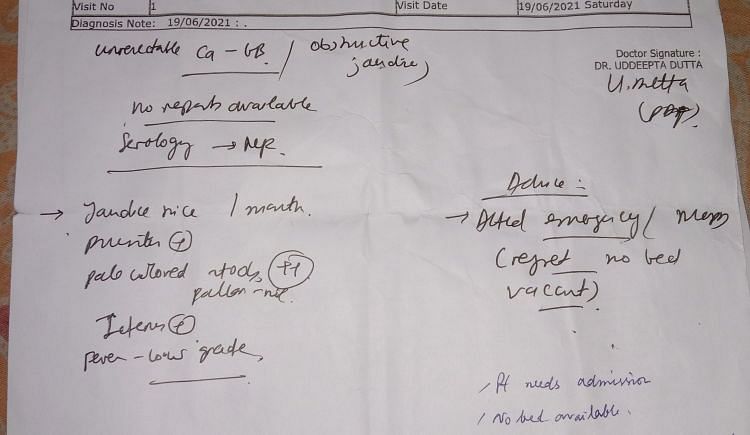 Visit No 1 Visit Date 19/06/2021 Saturday
Diagnosis Note: 19/06/2021 : .
unresectable Ca - GB / obstructive
jaundice
Doctor Signature :
DR. UDDEEPTA DUTTA
no reports available
Serology → NR.
→ Jaundice since 1 month.
pruritus +
pale colored stools ++
pallor - nil
Icterus +
fever - low grade,
Advice :-
→ Attend emergency /
(regret no bed
vaccant)
/ Pt needs admission
/ No bed available.